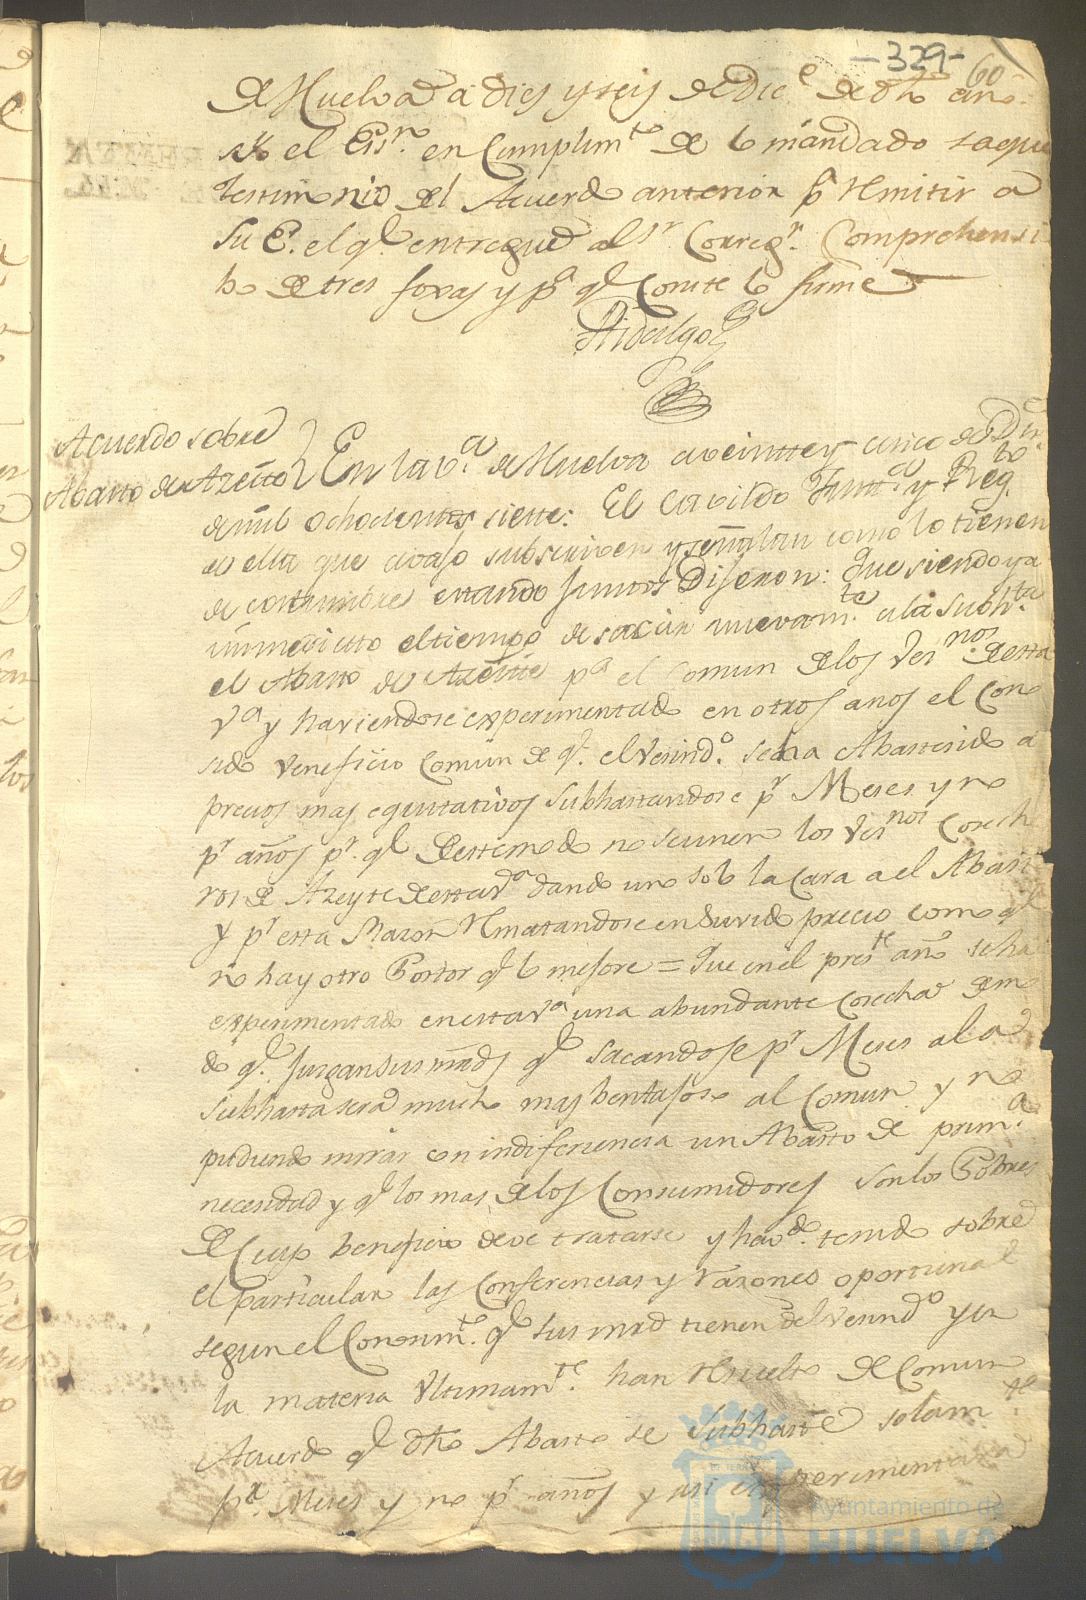 -329-
60
de Huelva a dies y seis de Dice. de dho año
Yo el Essno. en Cumplimto. de lo mandado saque
testimonio del Acuerdo anterior pa. remitir a
Su Ea. el qe. entregue al Sr. Corregr. Comprehensi
bo de tres foxas y pa. qe. Conste lo firme
Hidalgo
Acuerdo sobre
Abasto de Azeite
En la va. de Huelva a veintte y cinco de Dizre.
de mil ochocientos siette: El Cavildo Justta. y Regto.
de ella que abaxo subscriven y señalan como lo tienen
de costumbre estando Juntos Dijeron: Que siendo ya
inmediatto el tiempo de sacar nuevamte. a la Subhta.
el Abasto de Azeite pa. el Comun de los Vecnos. de esta
Va. y haviendose experimentado en otros años el Cono
sido veneficio Comun de qe. el Vesindo. sea Abastesido a
precios mas equitativos Subhastandose pr. Meses y no
pr. años pr. qe. de este modo no se unen los Vecnos. Coseche
ros de Azeyte de esta va. dando uno solo la Cara a el Abasto
y pr. esta Razon rematandose en Subido precio como qe.
no hay otro Postor qe. lo mejore = Que en el preste. año se ha
experimentado en esta va. una abundante Cosecha de mo
do qe. Juzgan sus mrds qe. sacandose pr. Meses a la
Subhasta sera mucho mas bentajoso al Comun y no
pudiendo mirar con indiferencia un Abasto de prima.
necesidad y qe. los mas de los Consumidores son los Pobres
de Cuyo beneficio deve tratarse y havdo. tenido sobre
el particular las Conferencias y razones oportunas
segun el Conosimto. qe. sus mrd tienen del Vesindo. y en
la materia Ultimamte. han resuelto de Comun
Acuerdo qe. dho Abasto se Subhaste solamte.
pr. Meses y no pr. años y asi experimentada
Ayuntamiento de
HUELVA